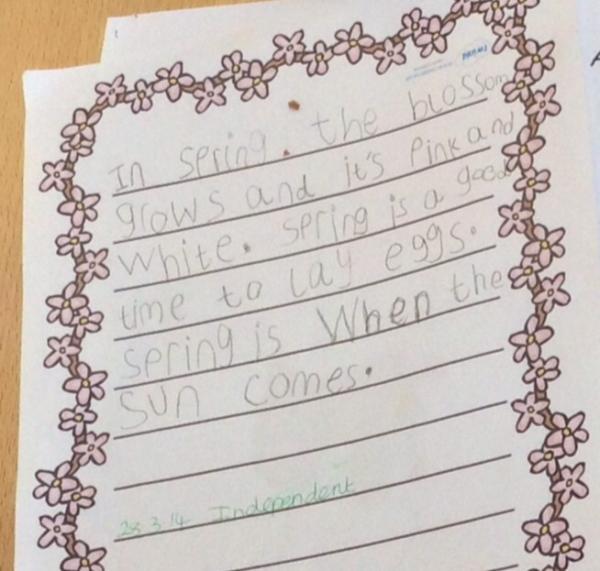 In spring. the blossom
grows and it's Pink and
white. spring is a good
time to lay eggs.
spring is When the
sun comes.
Independent